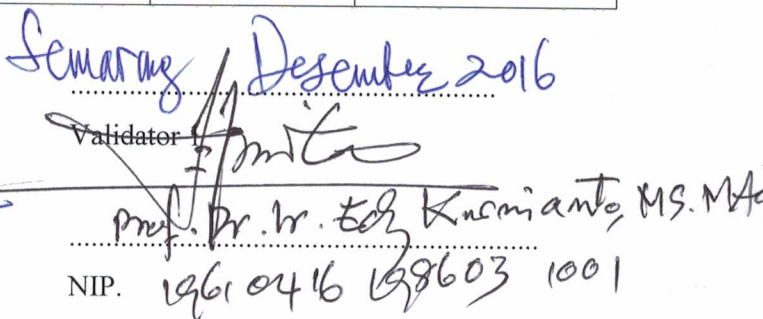 Semarang Desember 2016
Validator
Prof. Dr. Ir. Edy Kurnianto, MS. MAg
NIP. 19610416 198603 1001